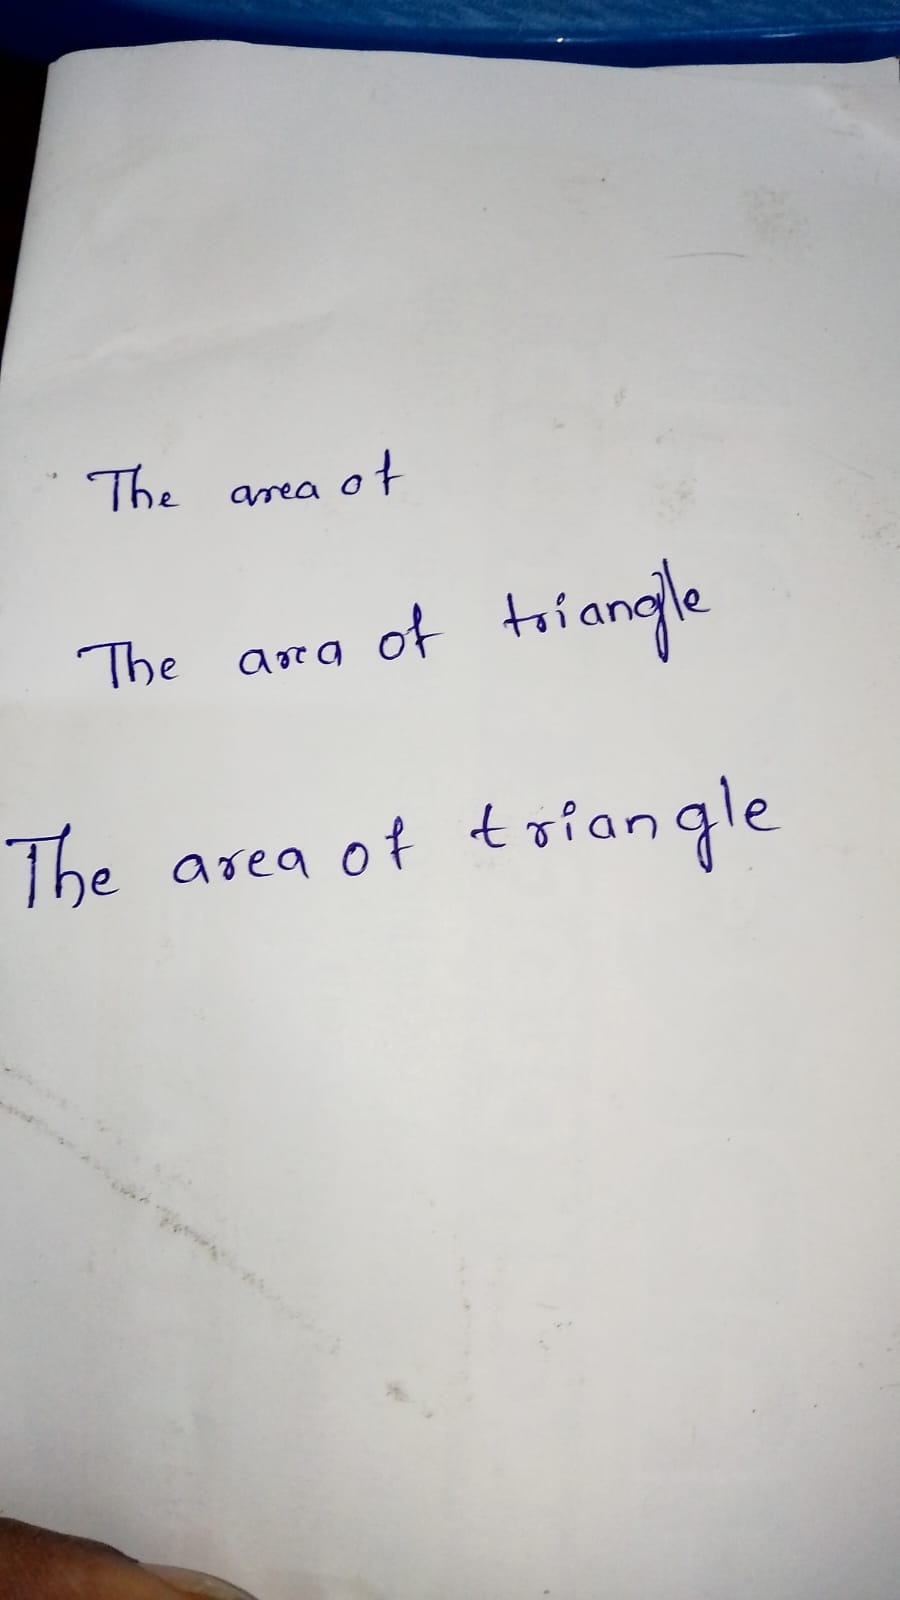 The area of
The area of triangle
The area of triangle